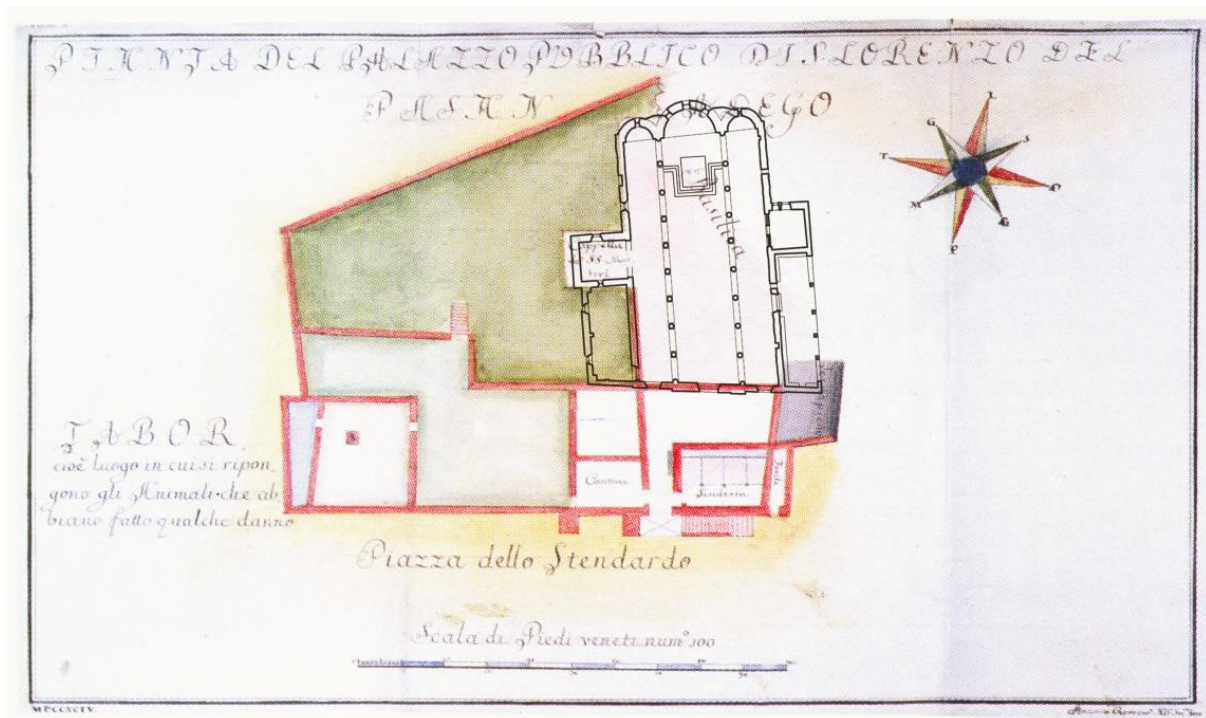 PIANTA DEL PALAZZO PVBBLICO DI S. LORENZO DEL
PASAN
DEGO
L
G
S
T
O
M
G
P
Basilica
Cappella
de SS. Mar
tiri
TABOR
cioè luogo in cui si ripon
gono gli Animali che ab
biano fatto qualche danno
Cantina
Scuderia
Piazza dello Stendardo
Scala di Piedi veneti num.º 100
MDCCXCIV.